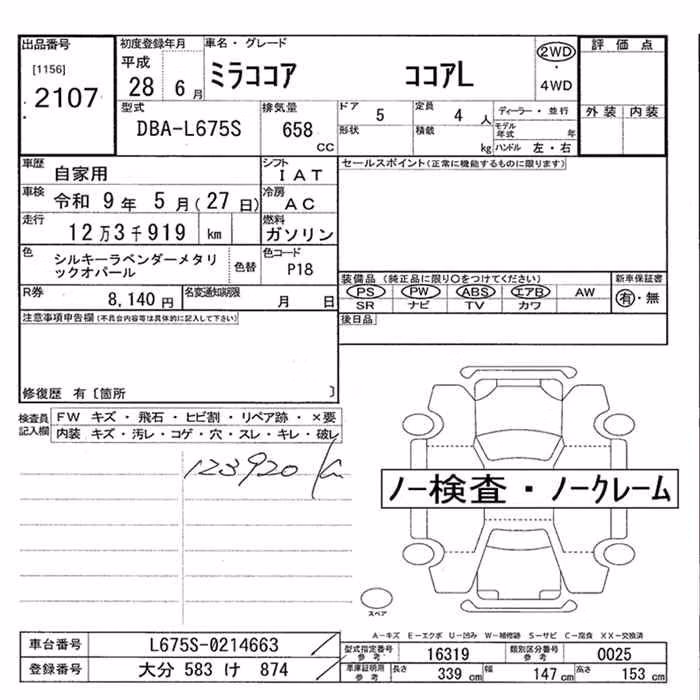 出品番号
[1156]
2107
初度登録年月
平成
28 6月
車名・グレード
ミラココア ココアL
2WD
・
4WD
評価点
外装 内装
型式
DBA-L675S
排気量
658
CC
ドア 5
定員 4 人
形状
積載 kg
ディーラー・並行
モデル年式 年
ハンドル 左・右
車歴
自家用
シフト
IAT
車検
令和 9年 5月(27日)
冷房
AC
走行
12万3千919 km
燃料
ガソリン
色
シルキーラベンダーメタリックオパール
色替
色コード
P18
R券
8,140円
名変通知期限
月 日
セールスポイント(正常に機能するものに限ります)
装備品(純正品に限り〇をつけてください)
PS PW ABS エアB AW
SR ナビ TV カワ
新車保証書
有・無
後日品
注意事項申告欄(不具合内容等は具体的に記入して下さい)
修復歴 有〔箇所 〕
検査員記入欄
FW キズ・飛石・ヒビ割・リペア跡・×要
内装 キズ・汚レ・コゲ・穴・スレ・キレ・破レ
123920
ノー検査・ノークレーム
スペア
A-キズ E-エクボ U-凹み W-補修跡 S-サビ C-腐食 XX-交換済
車台番号
L675S-0214663
登録番号
大分 583 け 874
型式指定番号
参考
16319
類別区分番号
参考
0025
車庫証明用
参考
長さ 339 cm 幅 147 cm 高さ 153 cm